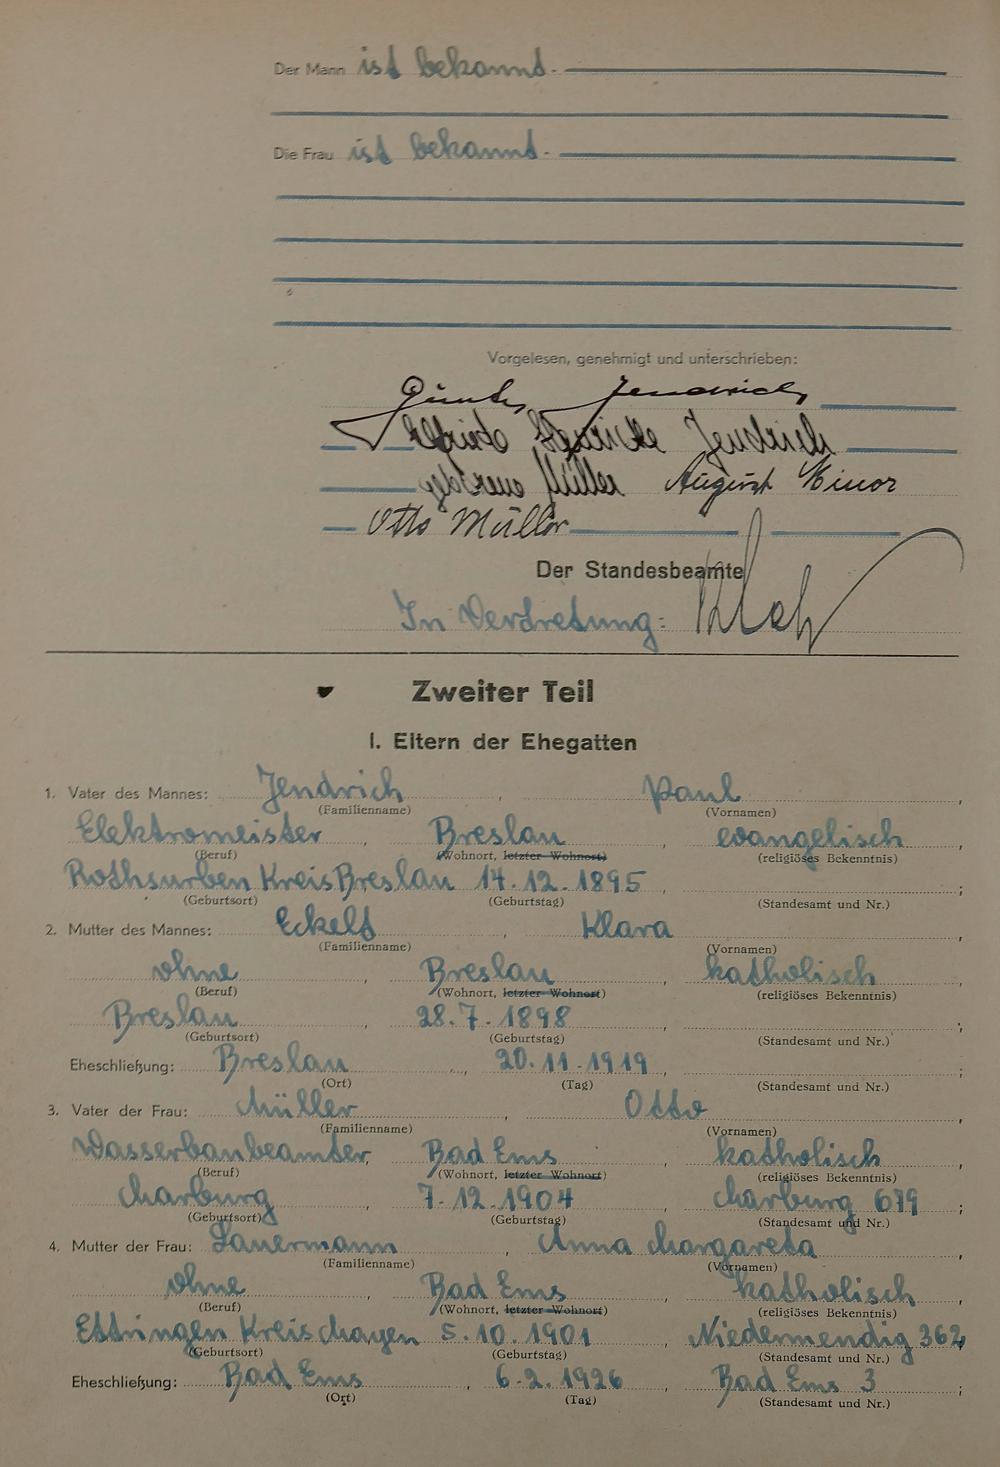 Der Mann ist bekannt.
Die Frau ist bekannt.
Vorgelesen, genehmigt und unterschrieben:
Günter Jendrich
Elfriede Jendrich
geborene Müller August Minor
Otto Müller
Der Standesbeamte
In Vertretung:
Zweiter Teil
I. Eltern der Ehegatten
1. Vater des Mannes: Jendrich, Paul,
(Familienname) (Vornamen)
Elektromeister, Breslau, evangelisch
(Beruf) (Wohnort, letzter Wohnort) (religiöses Bekenntnis)
Rothsürben Kreis Breslau 14.12.1895, ;
(Geburtsort) (Geburtstag) (Standesamt und Nr.)
2. Mutter des Mannes: Eckelt, Klara,
(Familienname) (Vornamen)
ohne, Breslau, katholisch,
(Beruf) (Wohnort, letzter Wohnort) (religiöses Bekenntnis)
Breslau, 28.7.1898, ;
(Geburtsort) (Geburtstag) (Standesamt und Nr.)
Eheschließung: Breslau, 20.11.1919, ;
(Ort) (Tag) (Standesamt und Nr.)
3. Vater der Frau: Müller, Otto,
(Familienname) (Vornamen)
Wasserbaubeamter, Bad Ems, katholisch,
(Beruf) (Wohnort, letzter Wohnort) (religiöses Bekenntnis)
Marburg, 7.12.1904, Marburg 679;
(Geburtsort) (Geburtstag) (Standesamt und Nr.)
4. Mutter der Frau: Lauermann, Anna Margareta,
(Familienname) (Vornamen)
ohne, Bad Ems, katholisch,
(Beruf) (Wohnort, letzter Wohnort) (religiöses Bekenntnis)
Ettringen Kreis Mayen 5.10.1901, Niedermendig 362,
(Geburtsort) (Geburtstag) (Standesamt und Nr.)
Eheschließung: Bad Ems, 6.2.1926, Bad Ems 3;
(Ort) (Tag) (Standesamt und Nr.)